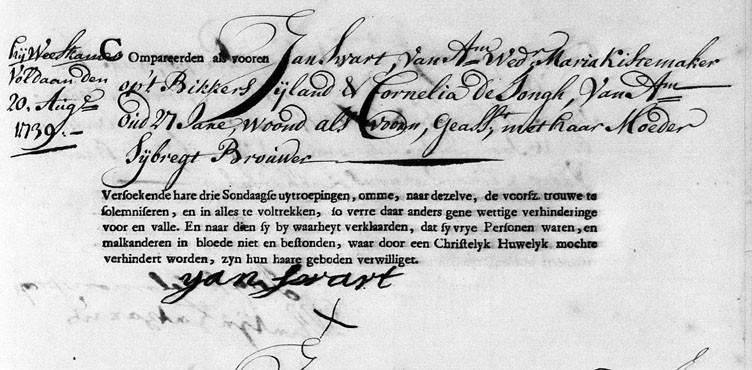 bij Weeskame
Voldaan den
20. Augs
1739.-
Compareerden als vooren Jan Swart, van Am Wedr Maria Kistemaker
op't Bikkers Eijland & Cornelia de Jongh, van Am
Oud 27 Jare, woond als vooren, Geasst met haar Moeder
Sijbregt Brouwer
Versoekende hare drie Sondaagse uytroepingen, omme, naar dezelve, de voorsz. trouwe te
solemniseren, en in alles te voltrekken, so verre daar anders gene wettige verhinderinge
voor en valle. En naar dien sy by waarheyt verklaarden, dat sy vrye Personen waren, en
malkanderen in bloede niet en bestonden, waar door een Christelyk Huwelyk mochte
verhindert worden, zyn hun haare geboden verwilliget.
yan swart
X